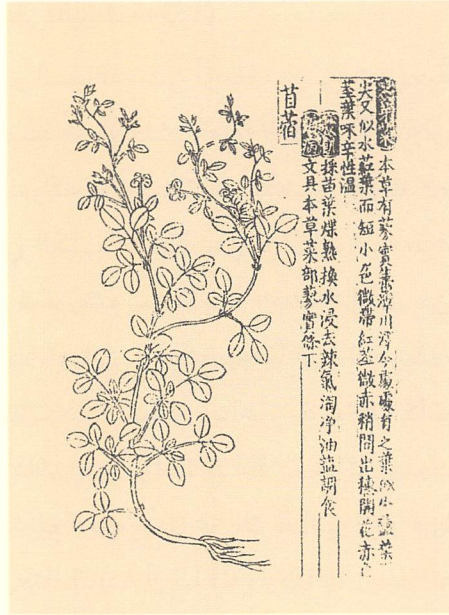 本草有蓼實生雷澤川澤今處處有之葉似小藍葉
尖又似水葒葉而短小色微帶紅莖微赤稍間出穗開花赤色
莖葉味辛性溫
採苗葉煠熟換水浸去辣氣淘净油鹽調食
文具本草菜部蓼實條下
苜蓿